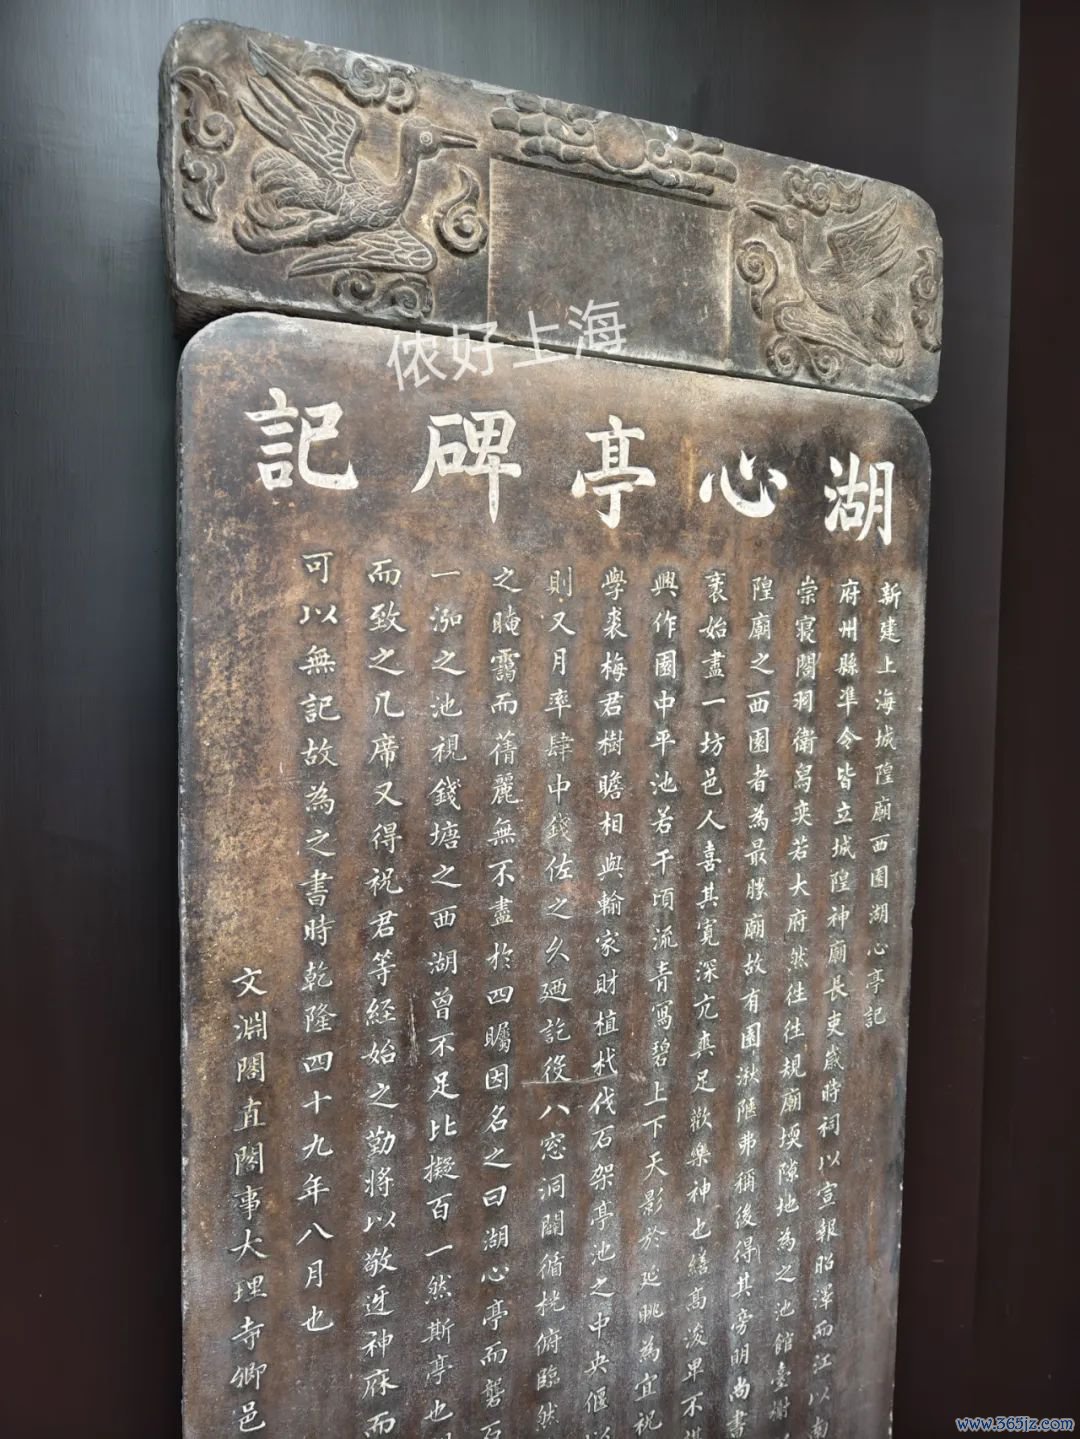 侬好上海
湖心亭碑記
新建上海城隍廟西園湖心亭記
府州縣準令皆立城隍神廟長吏歲時祠以宣報昭澤而江以南
崇寢閣羽衛寫奕若大府然往往規廟堧隙地為之池館臺榭
隍廟之西園者為最勝廟故有園湫隘弗稱後得其旁明尚書
袤始盡一坊邑人喜其寬深亢爽足歡樂神也繕高浚卑不
興作園中平池若干頃流青寫碧上下天影於延眺為宜祝
學裘梅君樹瞻相與輸家財植杙伐石架亭池之中央偃以
則又月率肆中錢佐之久迺訖役八窓洞闢循桄俯臨然
之晻靄而蒨麗無不盡於四矚因名之曰湖心亭而礱石
一泓之池視錢塘之西湖曾不足比擬百一然斯亭也
而致之几席又得祝君等経始之勤将以敬迓神庥而
可以無記故為之書時乾隆四十九年八月也
文淵閣直閣事大理寺卿邑
www.365jz.com